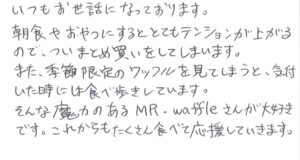 いつもお世話になっております。
朝食やおやつにするととてもテンションが上がる
ので、ついまとめ買いをしてしまいます。
また、季節限定のワッフルを見てしまうと、気付
いた時には食べ歩きしています。
そんな魔力のあるMR.waffleさんが大好き
です。これからもたくさん食べて応援していきます。